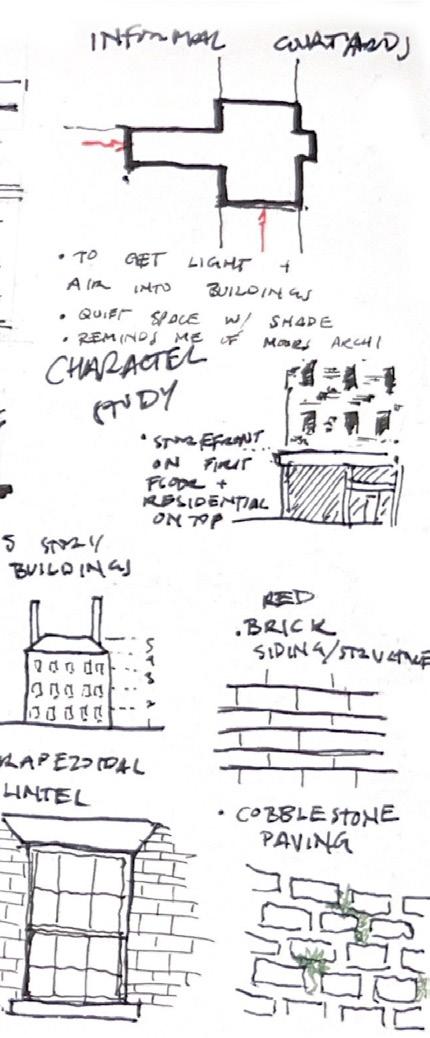 INFORMAL COURTYARDS
• TO GET LIGHT +
AIR INTO BUILDINGS
• QUIET SPACE W/ SHADE
• REMINDS ME OF MOORS ARCHI
CHARACTER
STUDY
• STOREFRONT
ON FIRST
FLOOR +
RESIDENTIAL
ON TOP
5 STORY
BUILDINGS
5
4
3
2
RED
• BRICK
SIDING/STRUCTURE
RAPEZOIDAL
LINTEL
• COBBLESTONE
PAVING